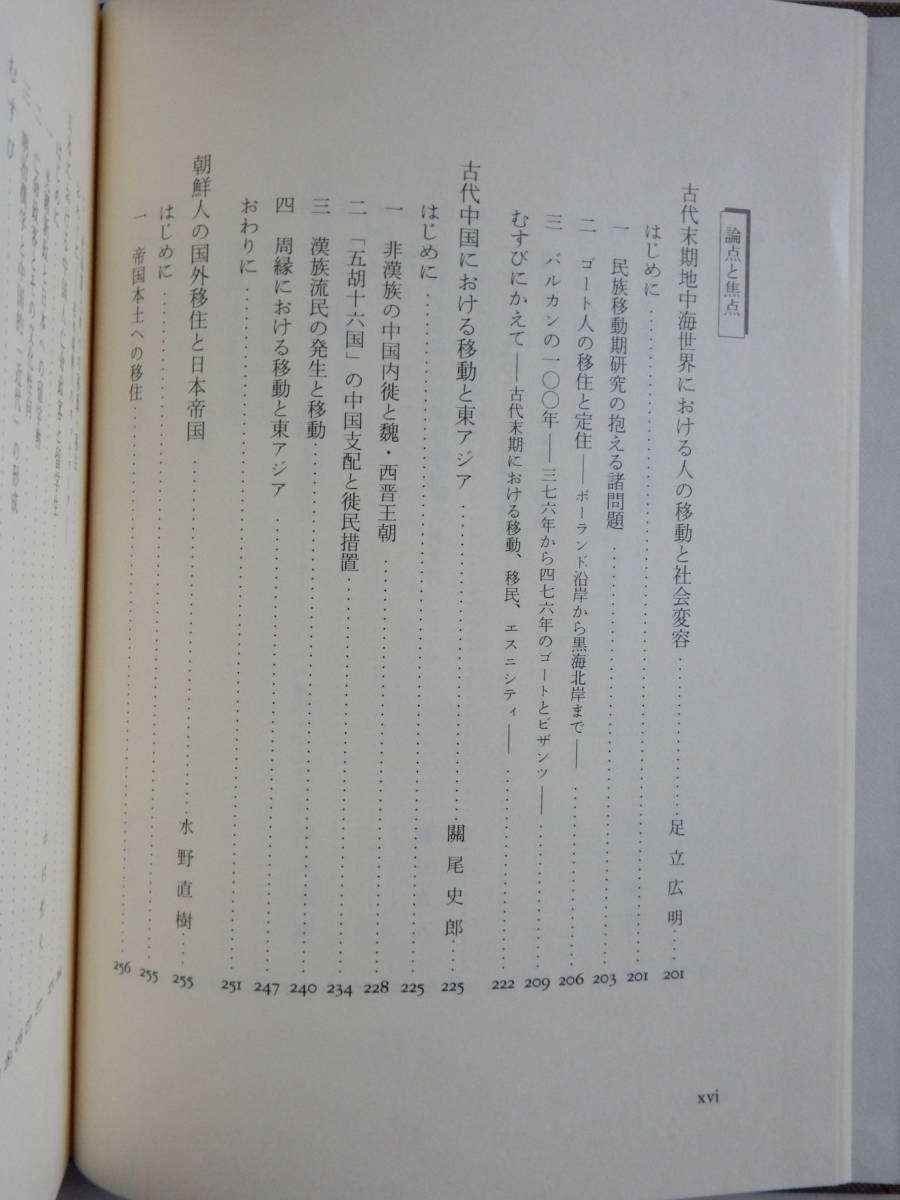 論点と焦点
古代末期地中海世界における人の移動と社会変容 足立広明 201
はじめに 201
一 民族移動期研究の抱える諸問題 203
二 ゴート人の移住と定住――ポーランド沿岸から黒海北岸まで―― 206
三 バルカンの一〇〇年――三七六年から四七六年のゴートとビザンツ―― 209
むすびにかえて――古代末期における移動、移民、エスニシティ―― 222
古代中国における移動と東アジア 關尾史郎 225
はじめに 225
一 非漢族の中国内徙と魏・西晋王朝 228
二 「五胡十六国」の中国支配と徙民措置 234
三 漢族流民の発生と移動 240
四 周縁における移動と東アジア 247
おわりに 251
朝鮮人の国外移住と日本帝国 水野直樹 255
はじめに 255
一 帝国本土への移住 256
xvi